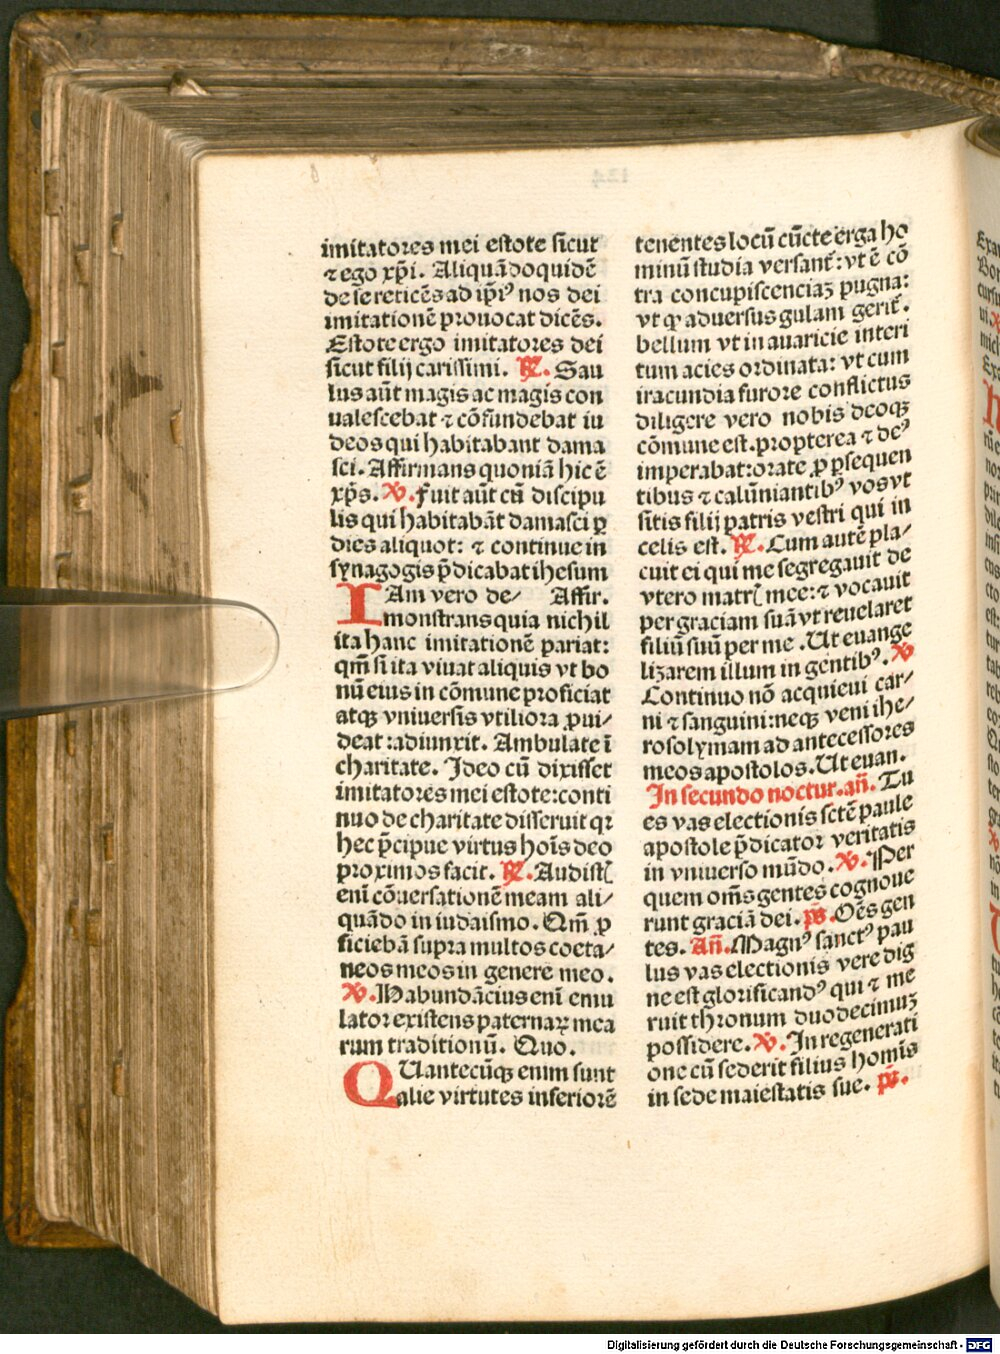 imitatores mei estote sicut
⁊ ego xp̄i. Aliquādo quidē
de se reticēs ad ip̄iꝰ nos dei
imitationē prouocat dicēs.
Estote ergo imitatores dei
sicut filij carissimi. ℟. Sau
lus aūt magis ac magis con
ualescebat ⁊ cōfundebat iu
deos qui habitabant dama
sci. Affirmans quoniā hic ē
xp̄s. ℣. Fuit aūt cū discipu
lis qui habitabāt damasci ꝑ
dies aliquot: ⁊ continue in
synagogis p̄dicabat ihesum
IAm vero de/ Affir.
monstrans quia nichil
ita hanc imitationē pariat:
qm̄ si ita viuat aliquis vt bo
nū eius in cōmune proficiat
atqꝫ vniuersis vtiliora ꝓui/
deat: adiunxit. Ambulate ī
charitate. Ideo cū dixisset
imitatores mei estote: conti
nuo de charitate disseruit qꝛ
hec p̄cipue virtus hoīs deo
proximos facit. ℟. Audistꝭ
enī cōuersationē meam ali/
quādo in iudaismo. Qm̄ ꝓ
ficiebā supra multos coeta/
neos meos in genere meo.
℣. Habundācius enī emu
lator existens paternaꝝ mea
rum traditionū. Quo.
QUantecūqꝫ enim sunt
alie virtutes inferiorē
tenentes locū cūcte erga ho
minū studia versant᷑: vt ē cō
tra concupiscenciaꝫ pugna:
vt qꝛ aduersus gulam gerit᷑.
bellum vt in auaricie interi
tum acies ordinata: vt cum
iracundia furore conflictus
diligere vero nobis deoqꝫ
cōmune est. propterea ⁊ deꝰ
imperabat: orate ꝓ ꝑsequen
tibus ⁊ calūniantibꝰ vos vt
sitis filij patris vestri qui in
celis est. ℟. Cum autē pla/
cuit ei qui me segregauit de
vtero matrꝭ mee: ⁊ vocauit
per graciam suā vt reuelaret
filiū suū per me. Ut euange
lizarem illum in gentibꝰ. ℣
Continuo nō acquieui car/
ni ⁊ sanguini: neqꝫ veni ihe/
rosolymam ad antecessores
meos apostolos. Ut euan.
In secundo noctur. añ. Tu
es vas electionis sctē paule
apostole p̄dicator veritatis
in vniuerso mūdo. ℣. Per
quem om̄s gentes cognoue
runt graciā dei. ps̄. Oēs gen
tes. Añ. Magnꝰ sanctꝰ pau
lus vas electionis vere dig
ne est glorificandꝰ qui ⁊ me
ruit thronum duodecimuꝫ
possidere. ℣. In regenerati
one cū sederit filius homīs
in sede maiestatis sue. ps̄.
Digitalisierung gefördert durch die Deutsche Forschungsgemeinschaft - DFG